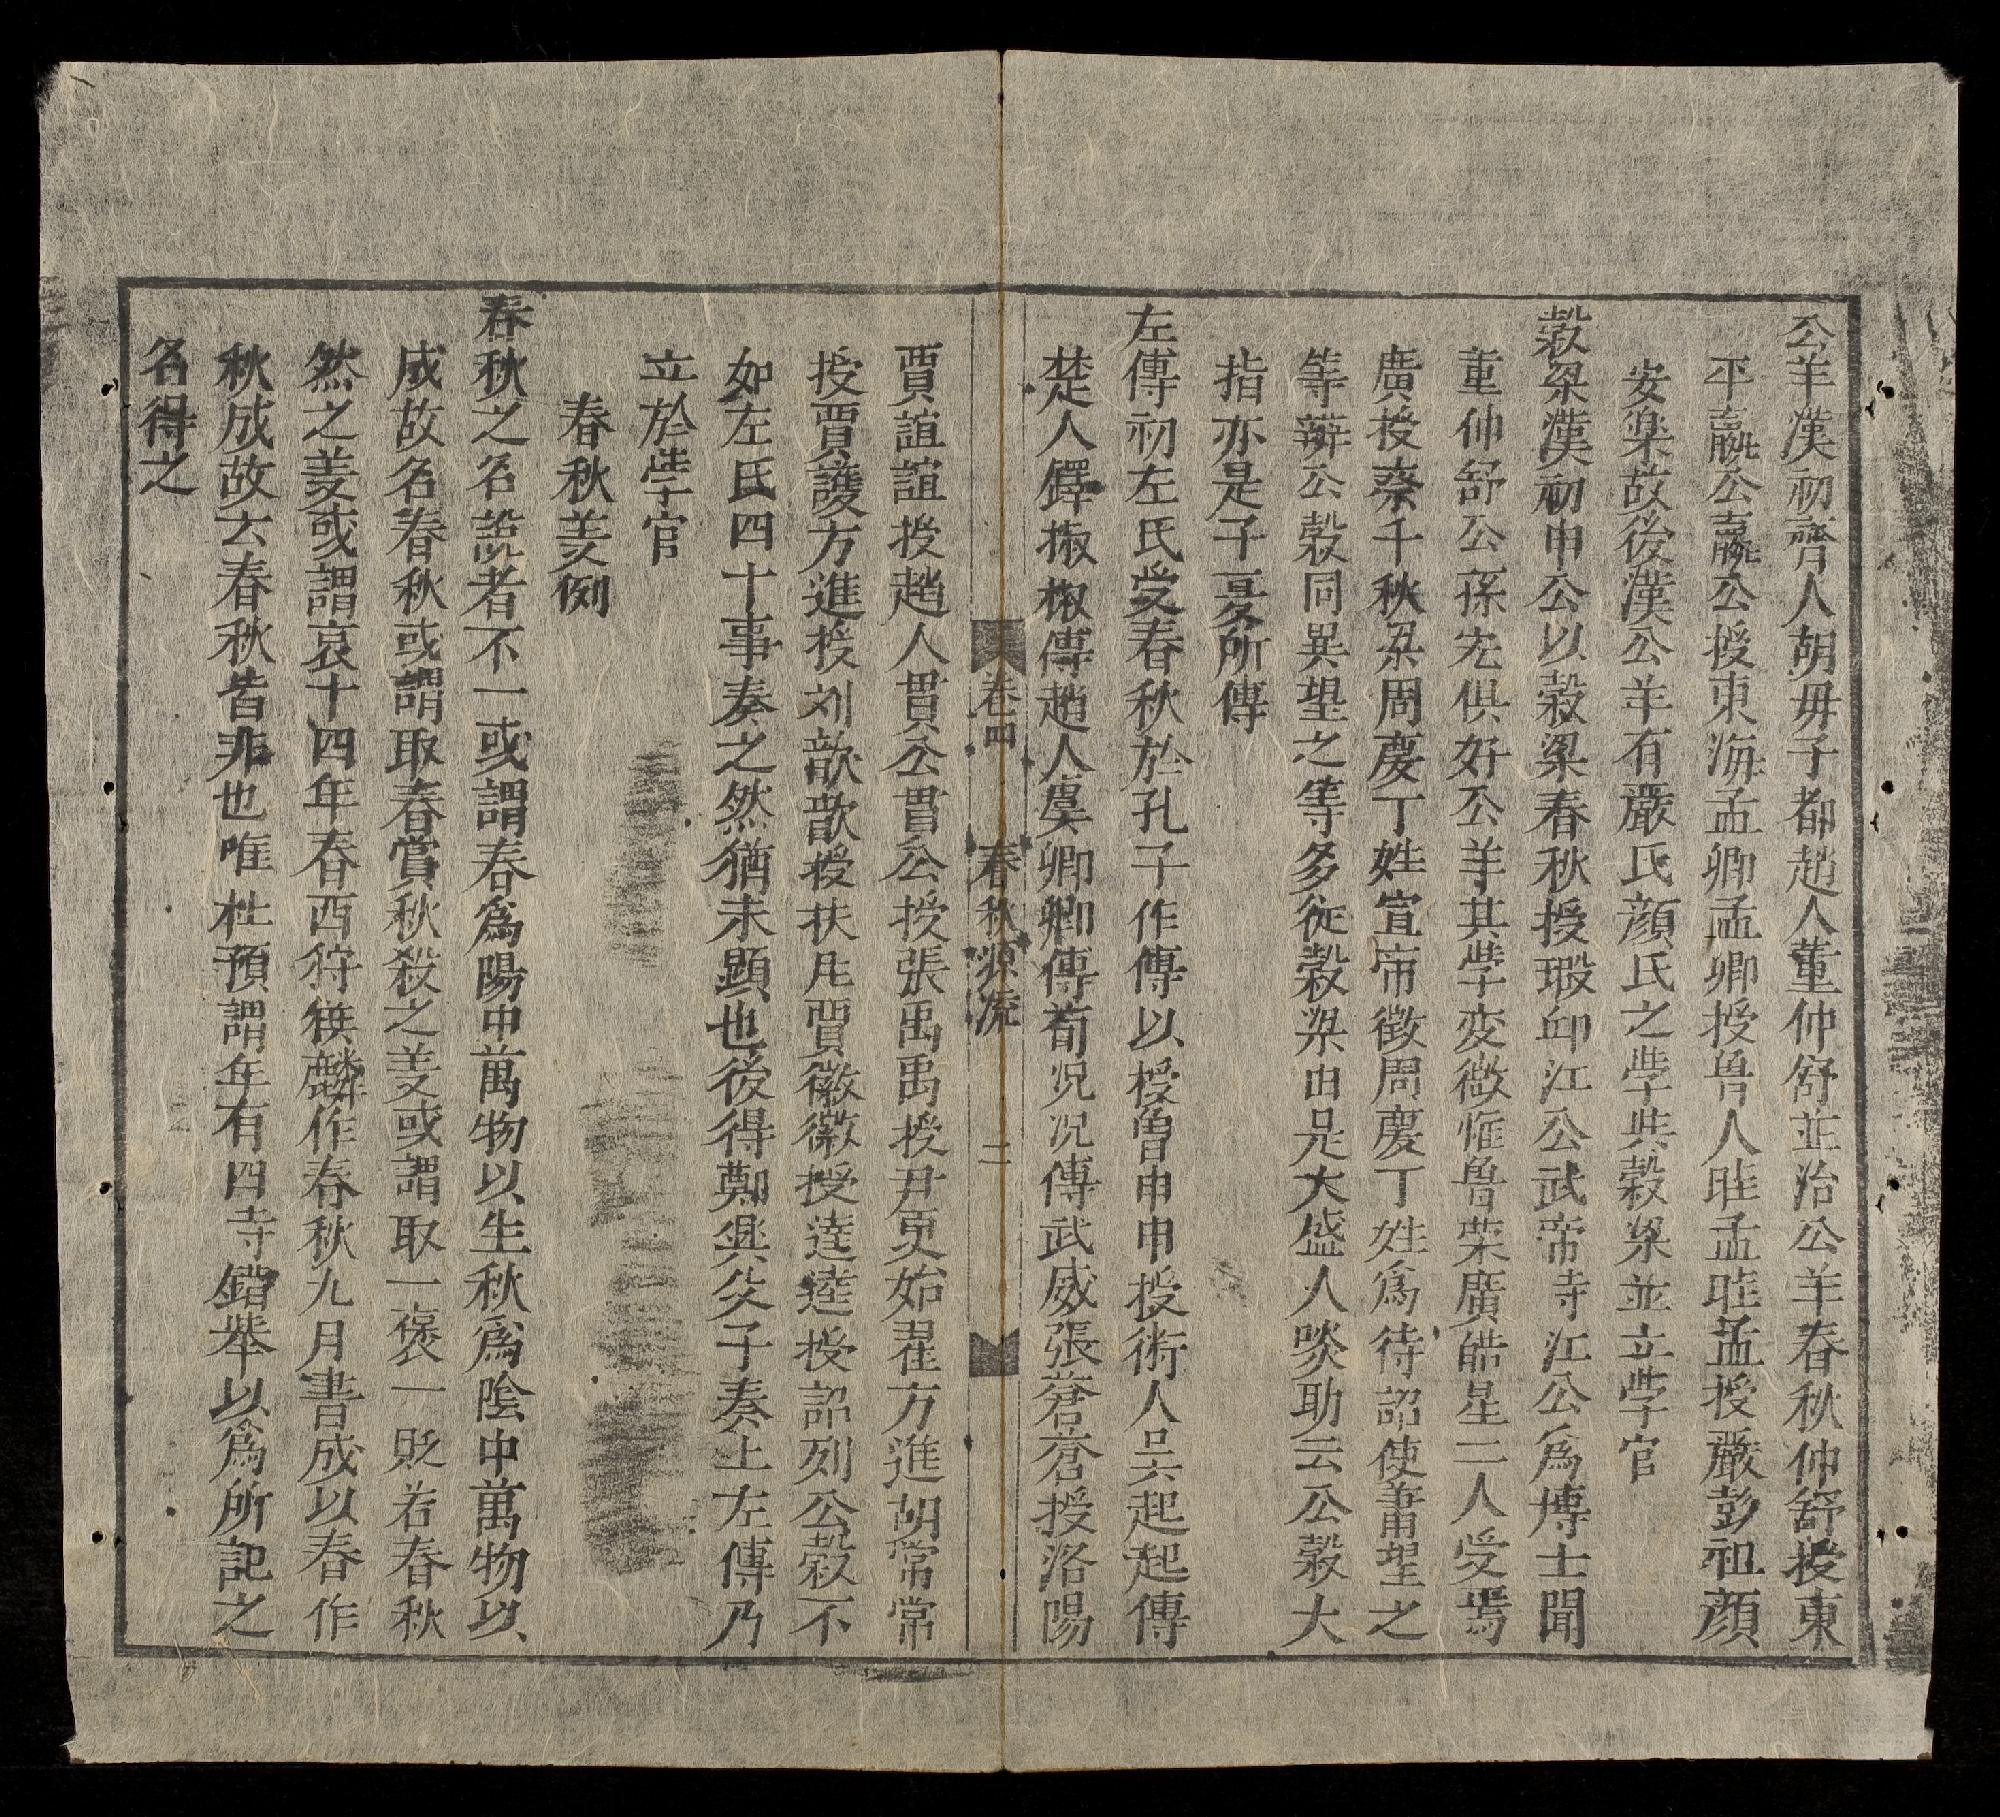 公羊漢初齊人胡毋子都趙人董仲舒並治公羊春秋仲舒授東
平嬴公嬴公授東海孟卿孟卿授魯人眭孟眭孟授嚴彭祖顔
安楽故後漢公羊有嚴氏顔氏之斈與穀梁並立斈官
穀梁漢初申公以穀梁春秋授瑕邱江公武帝時江公爲博士聞
董仲舒公孫宏俱好公羊其斈変微惟魯荣廣皓星二人受焉
廣授蔡千秋梁周慶丁姓宣帝徵周慶丁姓爲待詔使蕭望之
等辨公穀同異望之等多從穀梁由是大盛人啖助云公穀大
指亦是子夏所傳
左傳初左氏受春秋於孔子作傳以授魯申申授術人吳起起傳
楚人鐸掓椒傳趙人虞卿卿傳荀况况傳武威張蒼蒼授洛陽
卷四 春秋源流 二
賈誼誼授趙人貫公貫公授張禹禹授尹更始翟方進胡常常
授賈護方進授刘歆歆授扶风賈徽徽授逵逵授詔列公穀不
如左氏四十事奏之然猶未顕也後得鄭興父子奏上左傳乃
立於斈官
春秋义例
春秋之名説者不一或謂春爲陽中萬物以生秋爲陰中萬物以
成故名春秋或謂取春賞秋殺之义或謂取一褒一貶若春秋
然之义或謂哀十四年春西狩獲麟作春秋九月書成以春作
秋成故云春秋皆非也唯杜預謂年有四时錯举以爲所記之
名得之